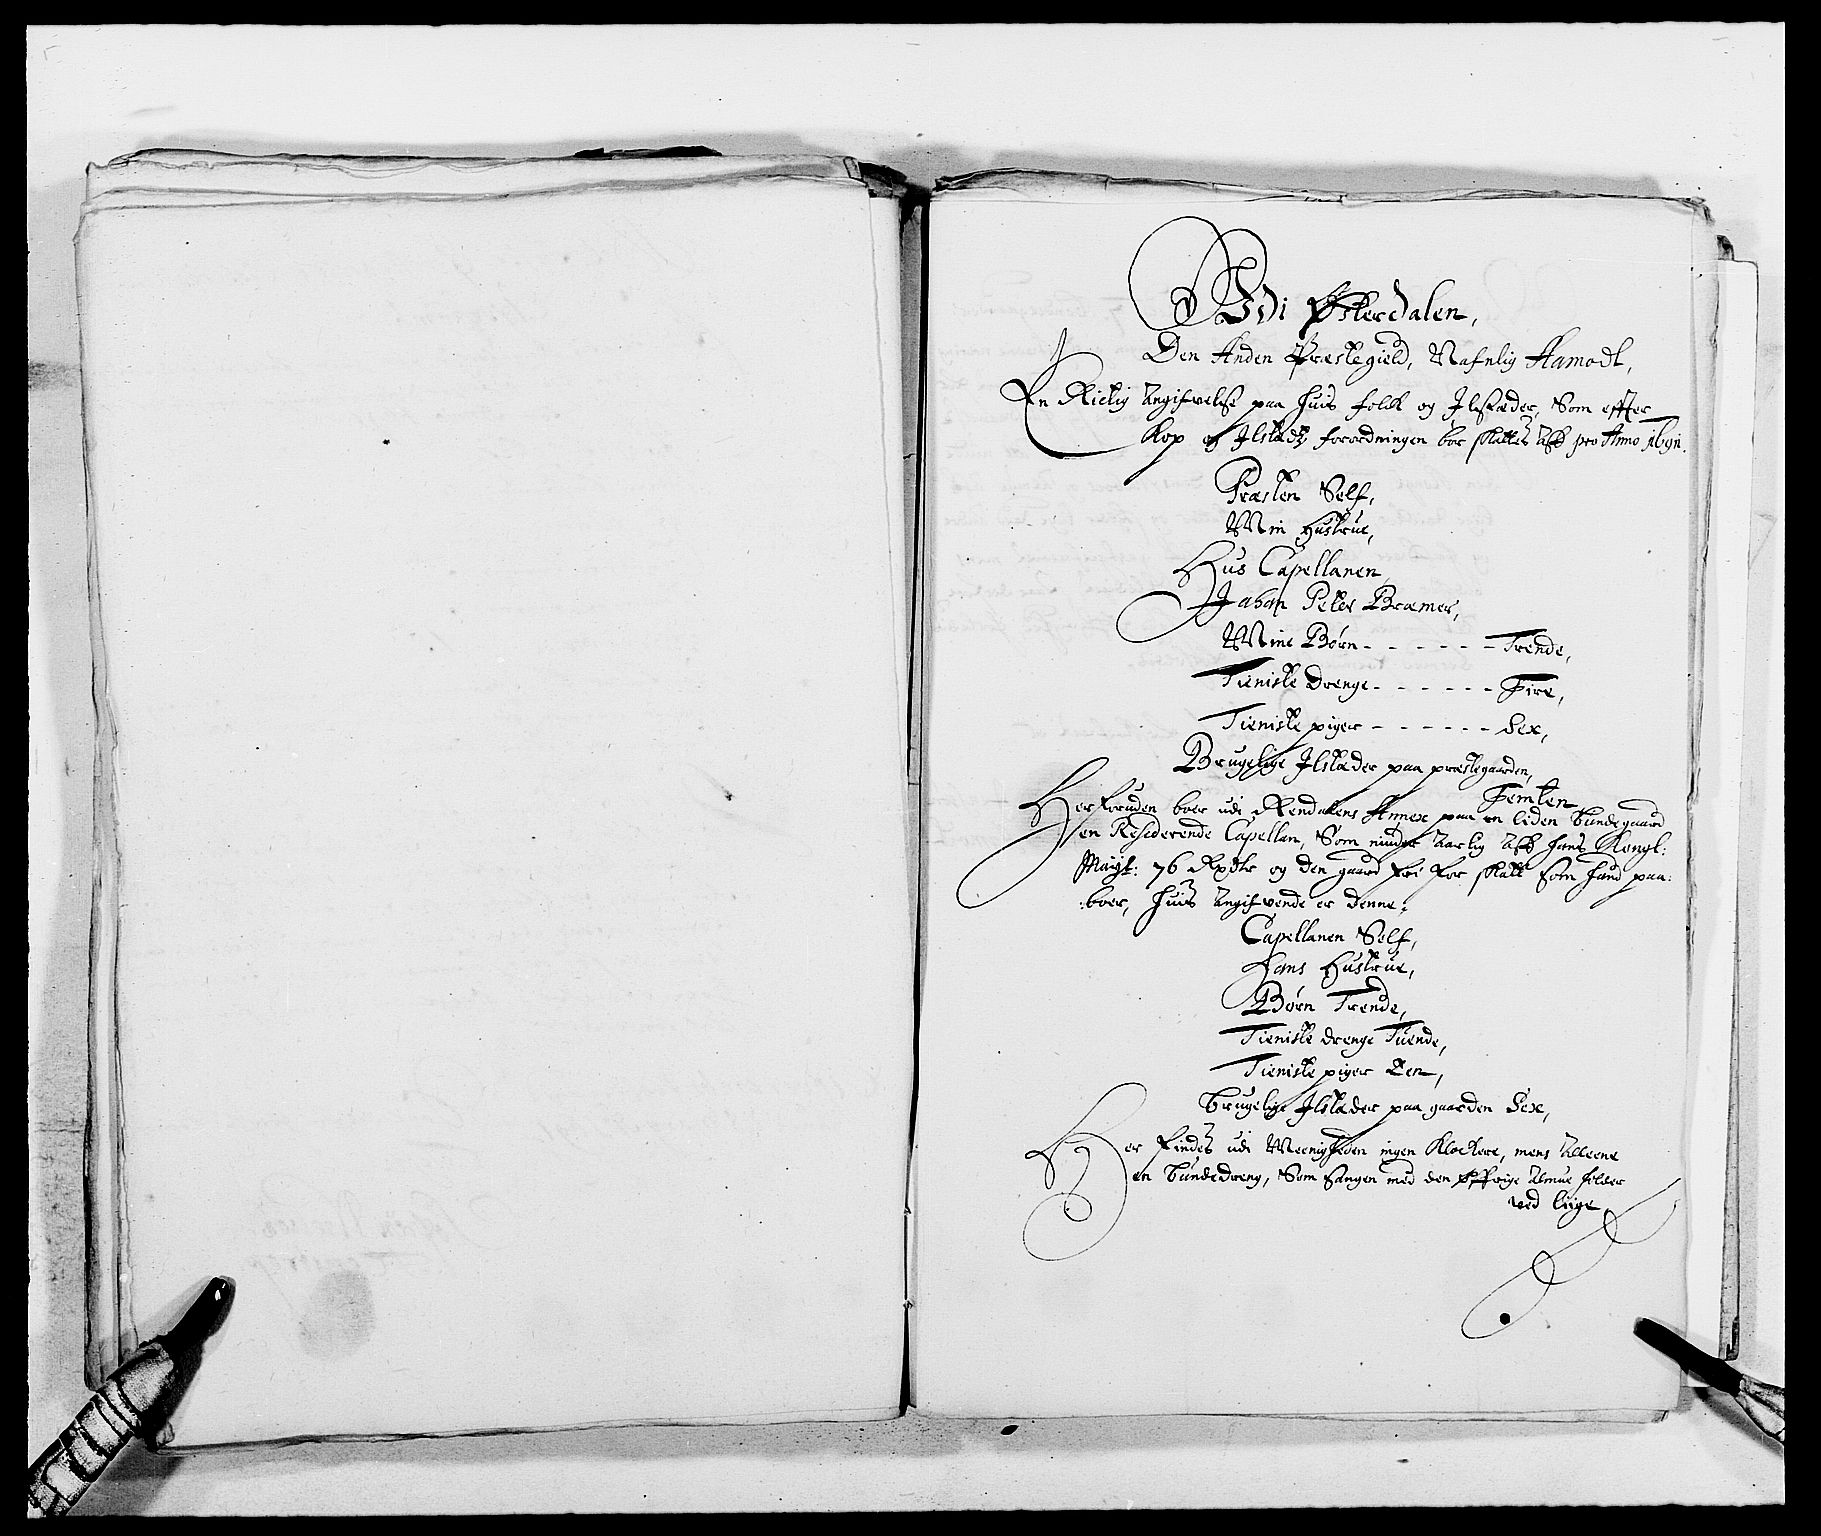 Udi Østerdalen,
Den Anden Præstegield, Nafnlig Aamodt,
En Rictig Angifvelse paa huis folck og Ilstæder, Som effter
Kop og Ilstedz forordningen bør skattes aff pro Anno 1691.
Præsten Self,
Min Hustrue,
Hus Capellanen,
Johan Peter Bræmer,
Mine Børn - - - - - - Trende,
Tieniste Drenge - - - - - - Fire,
Tieniste piger - - - - - - Sex,
Brugelige Ilstæder paa præstegaarden,
Femten,
Herforuden boer udi Rendalens Annex paa en liden bundegaard
en Residerende Capellan, Som nyder aarlig aff hans Kongl:
Mayst: 76 Rixdlr og den gaard fri for skatt som hand paa:
:boer, huis angifvende er denne:
Capellanen Self,
Hans Hustrue,
Børn Trende,
Tieniste drenge Tuende,
Tieniste piger Een,
brugelige Ilstæder paa gaarden Sex,
Her findes udi Meenigheden ingen Klockere, mens alleene
en bundedreng, Som sangen med den øffrige almue holder
ved liige